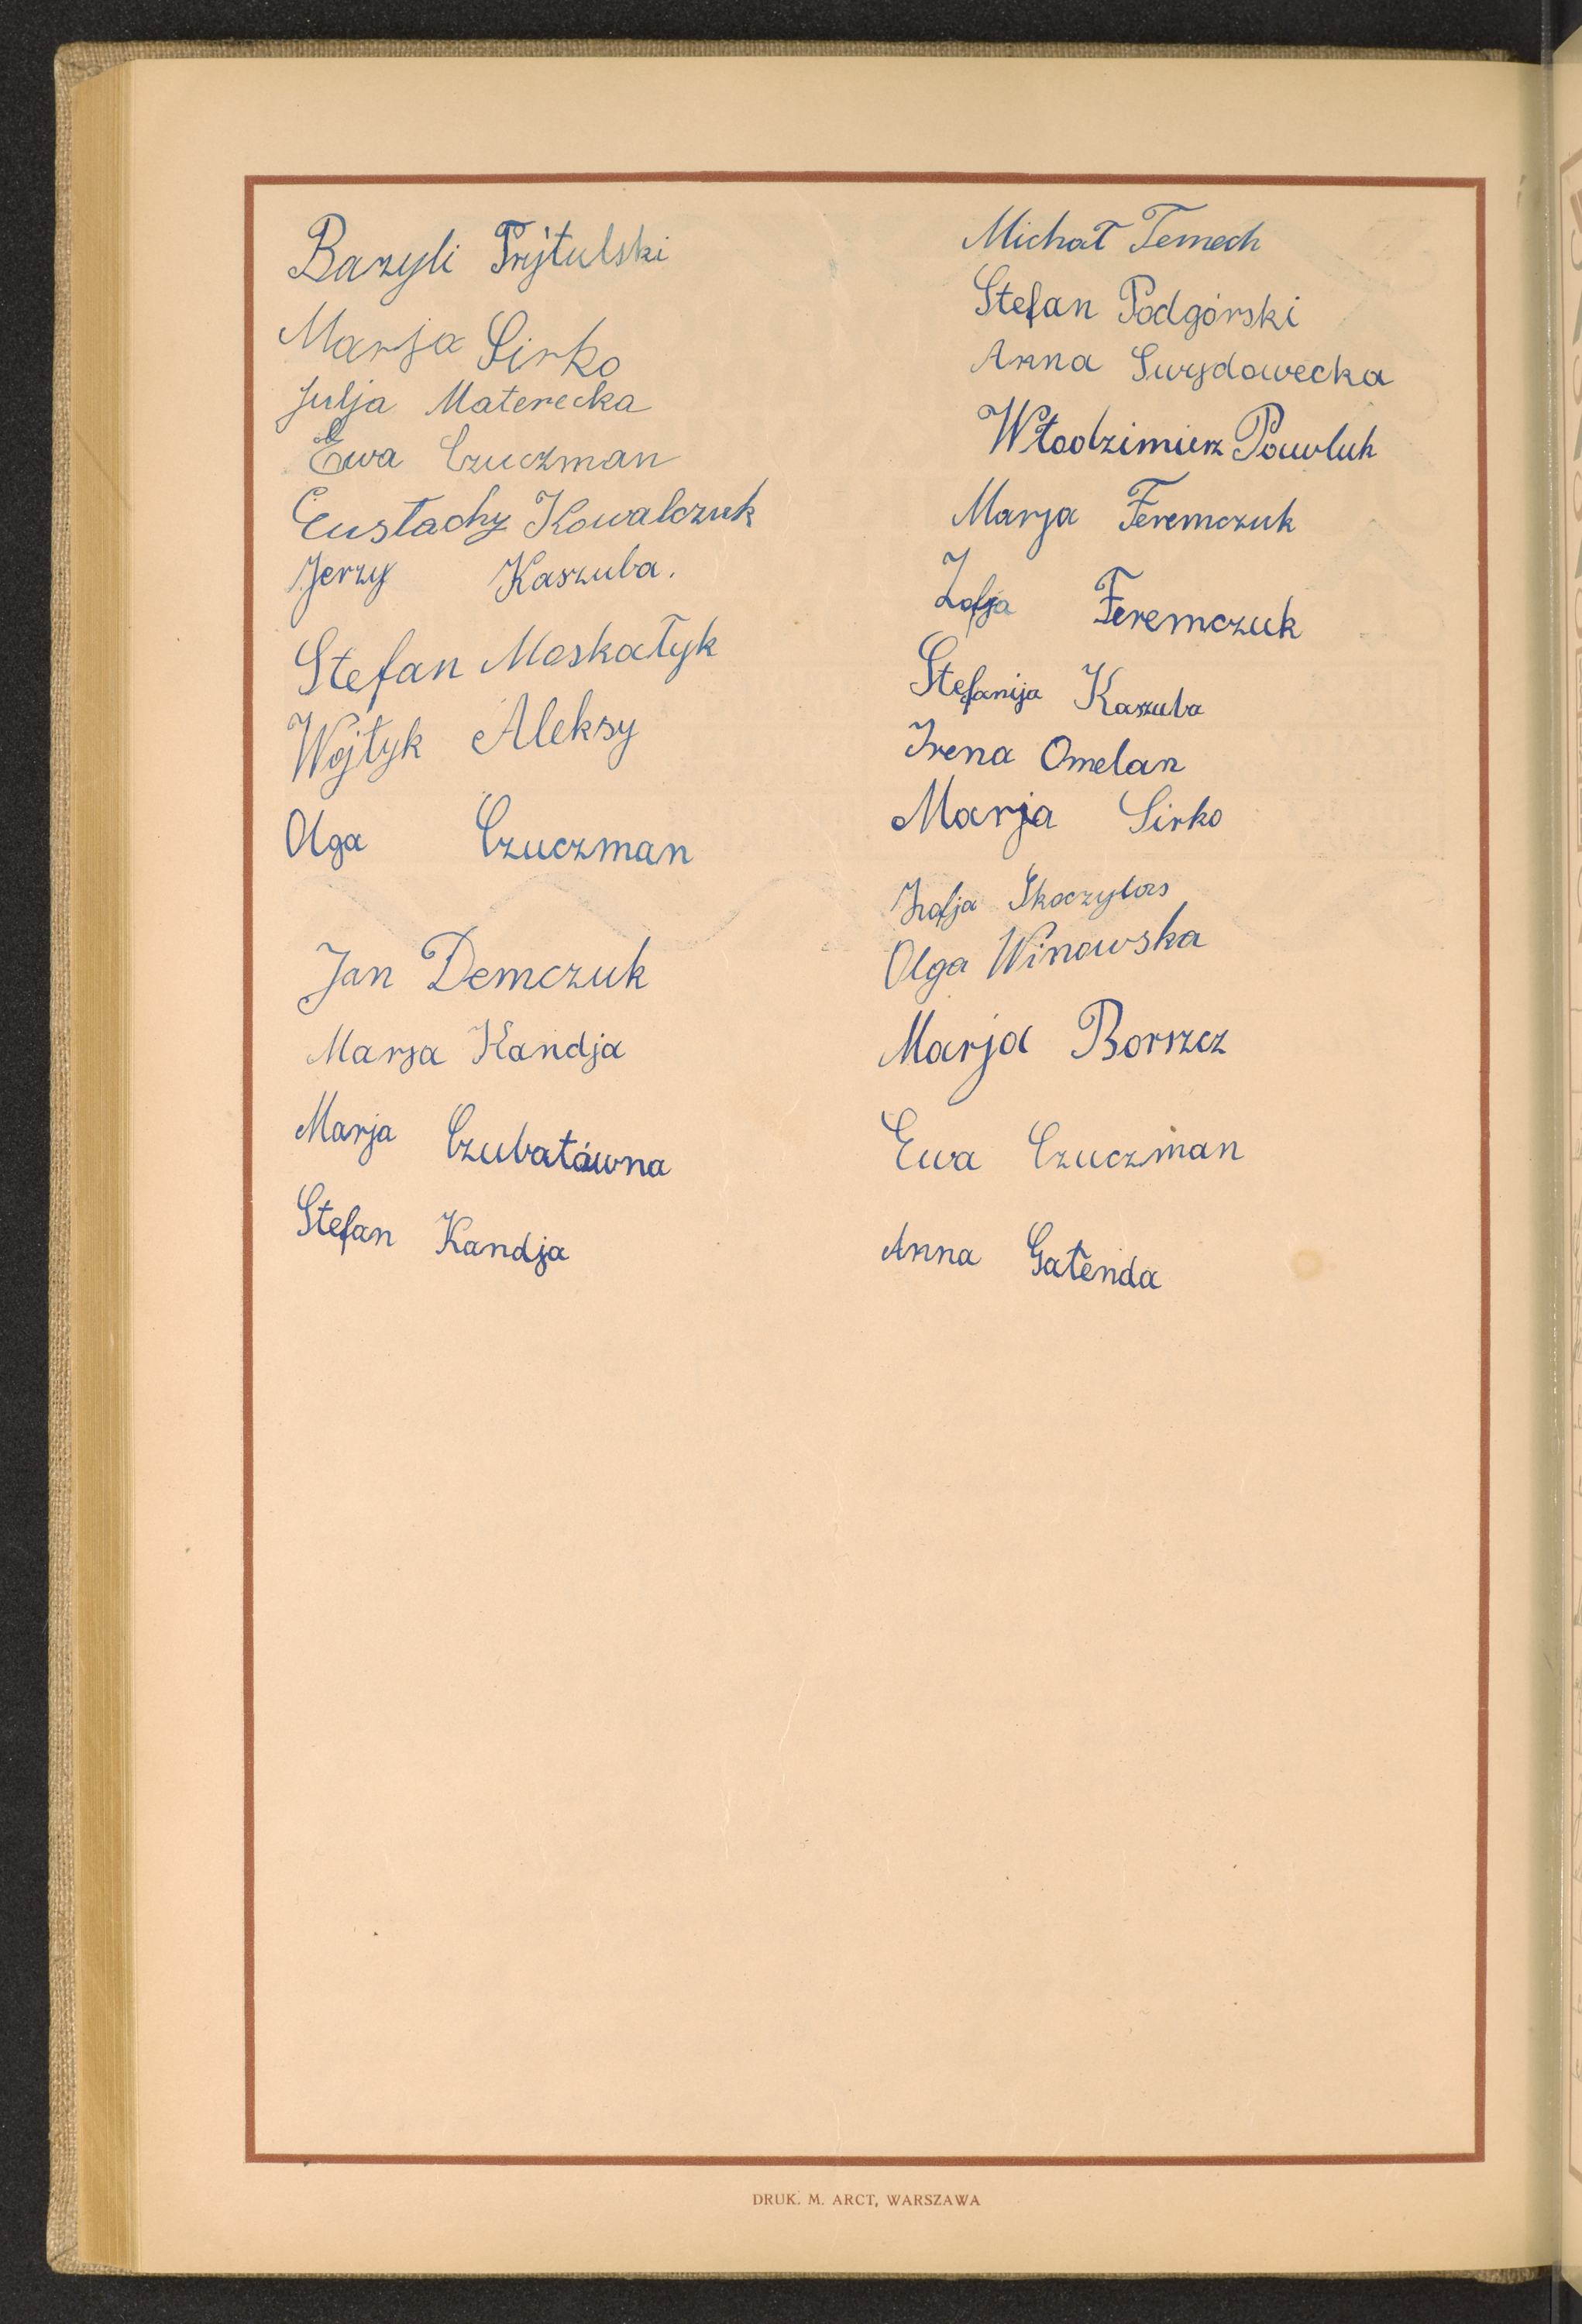 Bazyli Prytulski
Marja Sirko
Julja Materecka
Ewa Czuczman
Eustachy Kowalczuk
Jerzy Kaszuba.
Stefan Moskałyk
Wojtyk Aleksy
Olga Czuczman
Jan Demczuk
Marja Kandja
Marja Czubatówna
Stefan Kandja
Michał Temech
Stefan Podgórski
Anna Swydowecka
Włodzimierz Pawluk
Marja Feremczuk
Zofja Feremczuk
Stefanija Kaszuba
Irena Omelan
Marja Sirko
Zofja Skoczylas
Olga Winowska
Marja Borszcz
Ewa Czuczman
Anna Gałenda
DRUK. M. ARCT, WARSZAWA